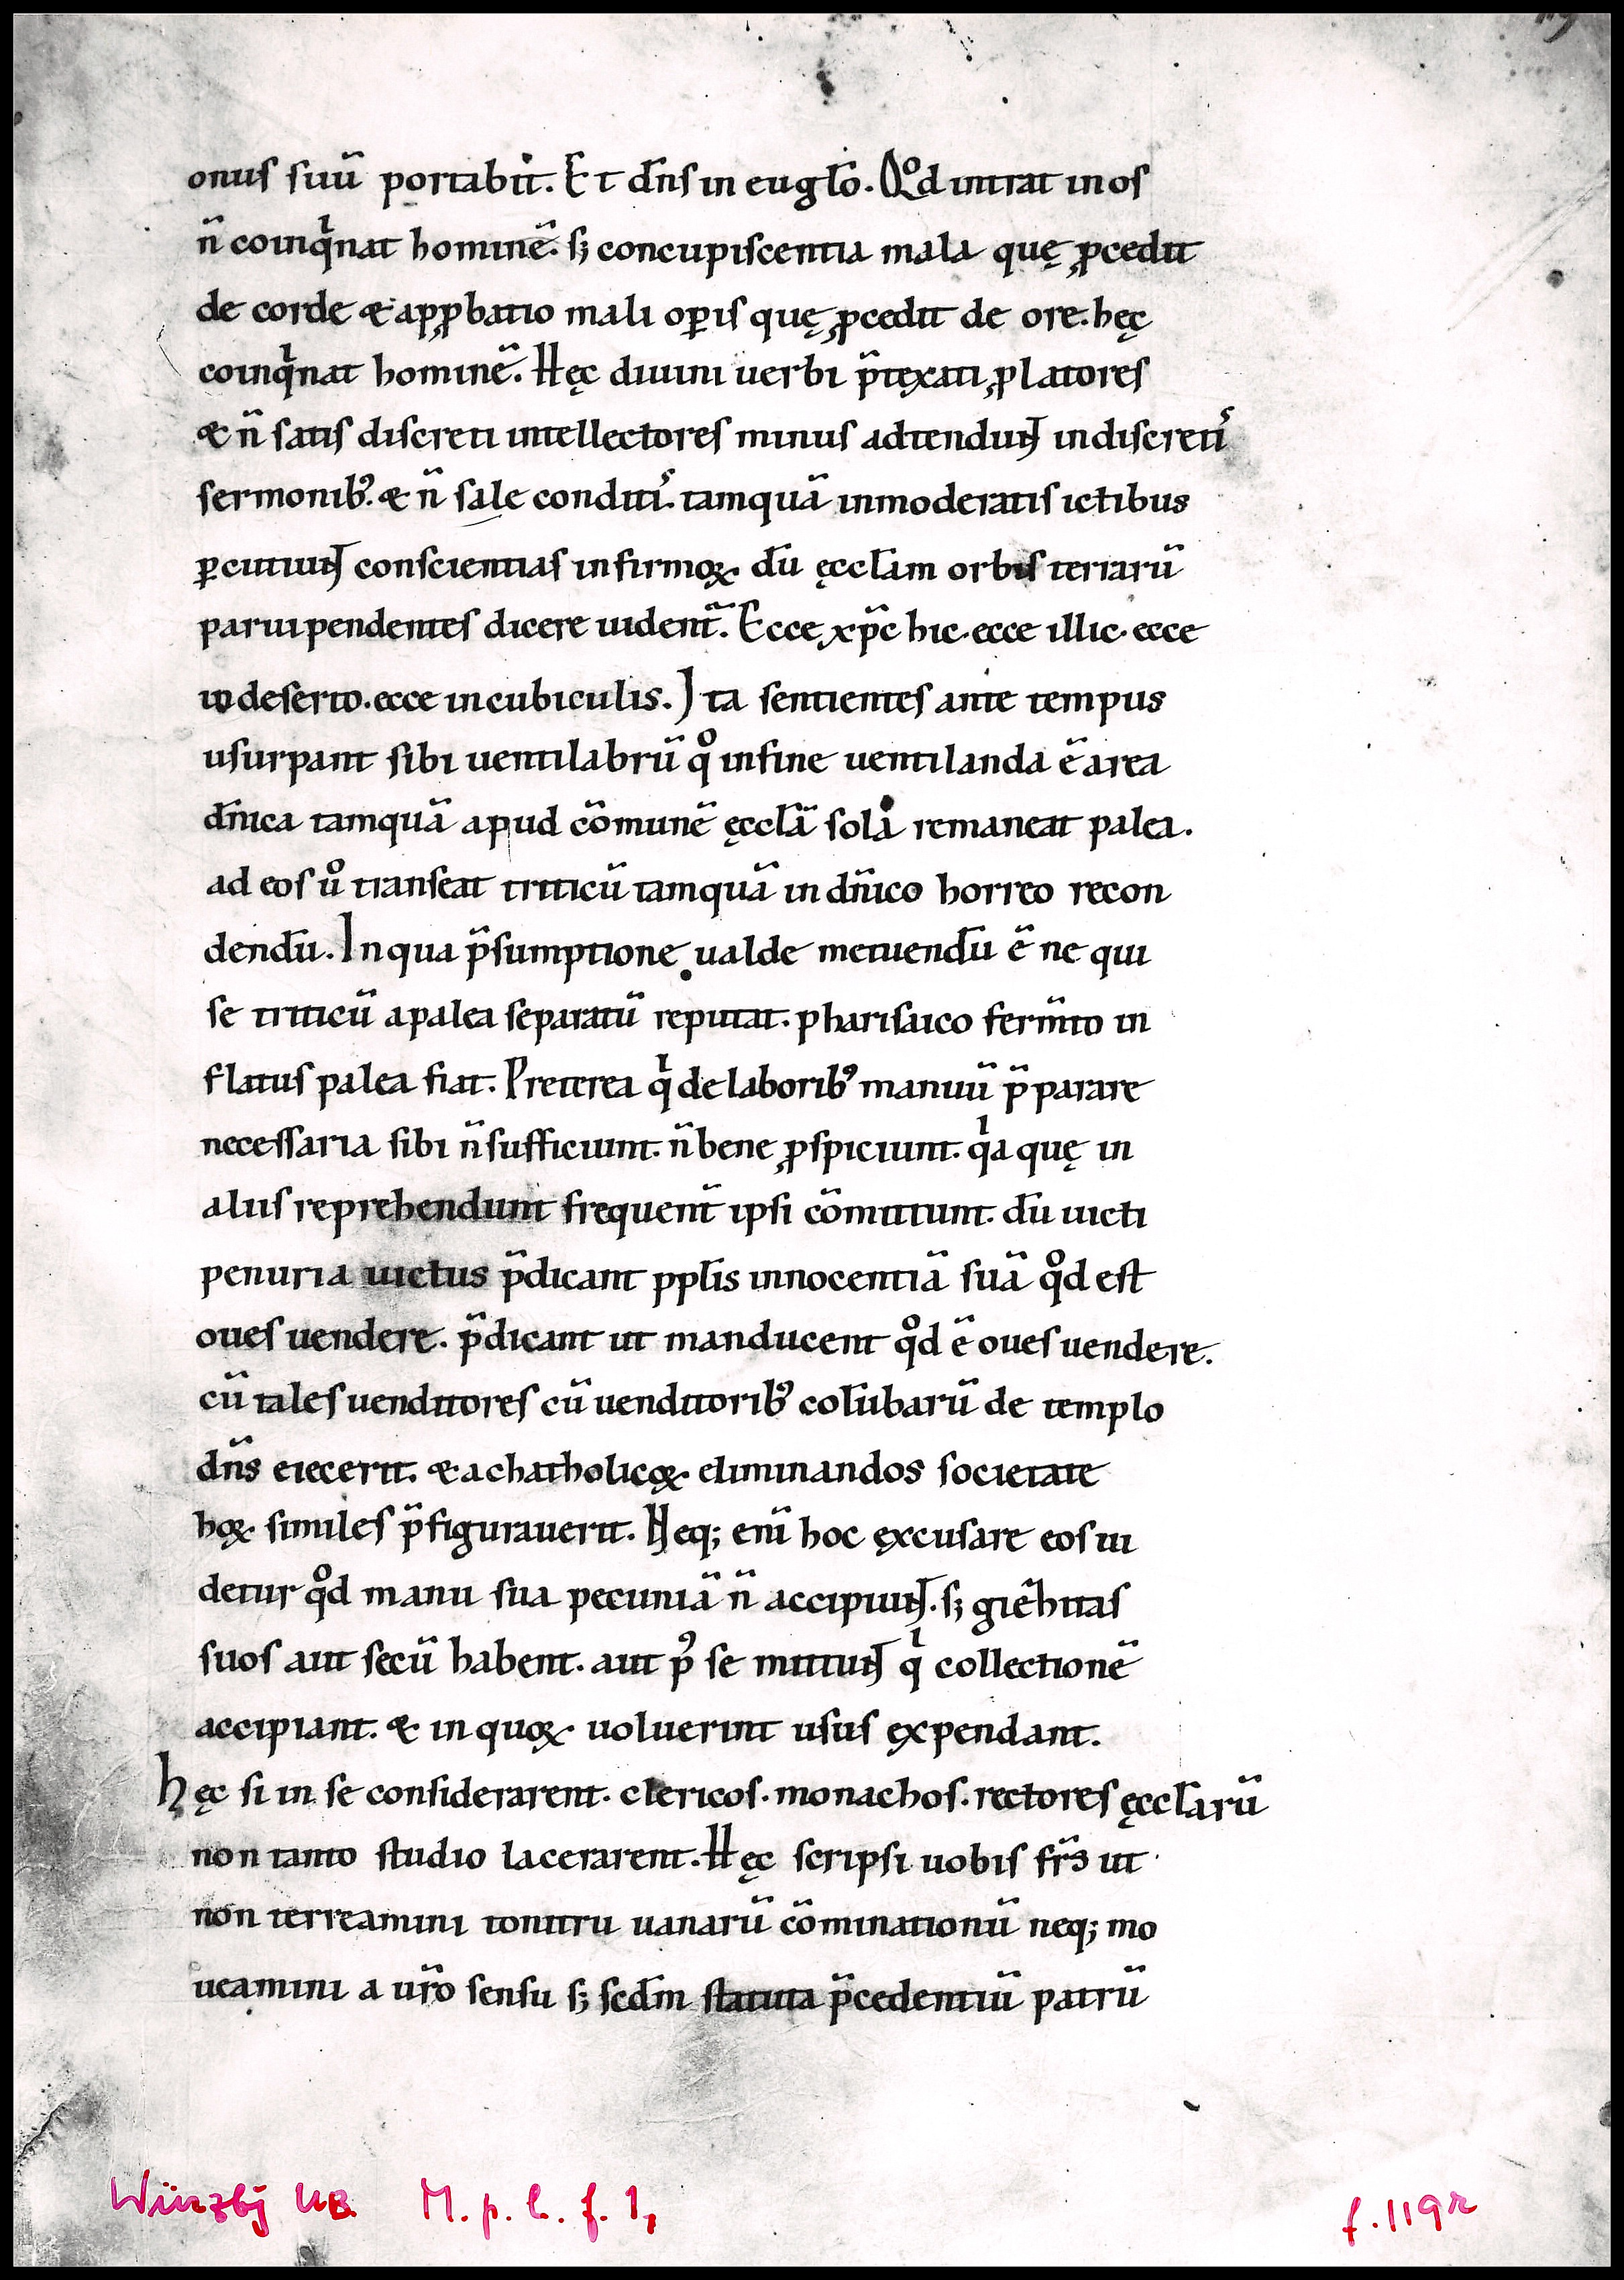 onus suū portabit. Et dn̄s in eugl̄o. Qͦd intrat in os
n̄ coinqͥnat hominē. sꝫ concupiscentia mala quę ꝓcedit
de corde & apꝓbatio mali oꝑis quę ꝓcedit de ore. hęc
coinqͥnat hominē. Hęc diuini uerbi p̄tęxati ꝓlatores
& n̄ satis discreti intellectores minus adtendunt indiscretis
sermonibꝰ. & n̄ sale conditis. tamquā inmoderatis ictibus
ꝑcutiunt conscientias infirmoꝝ. dū ęccl̄am orbis terrarū
paruipendentes dicere uident̄. Ecce xp̄c hic. ecce illic. ecce
in deserto. ecce in cubiculis. Ita sentientes ante tempus
usurpant sibi uentilabrū qͦ in fine uentilanda ē area
dn̄ica tamquā apud cōmunē ęccl̄ā sola remaneat palea.
ad eos uͦ transeat triticū tamquā in dn̄ico horreo recon
dendū. In qua p̄sumptione ualde metuendū ē ne qui
se triticū a palea separatū reputat. pharisaico ferm̄to in
flatus palea fiat. Preterea qͥ de laboribꝰ manuū p̄parare
necessaria sibi n̄ sufficiunt. n̄ bene ꝓspiciunt. qͥa quę in
aliis reprehendunt frequent̄ ipsi cōmittunt. dū uicti
penuria uictus p̄dicant ppl̄is innocentiā suā qͦd est
oues uendere. p̄dicant ut manducent qͦd ē oues uendere.
cū tales uenditores cū uenditoribꝰ colūbarū de templo
dn̄s eiecerit. & a chatholicoꝝ eliminandos societate
hoꝝ similes p̄figurauerit. Neq; enī hoc ęxcusare eos ui
detur qͦd manu sua pecuniā n̄ accipiunt. sꝫ giēhitas
suos aut secū habent. aut pꝰ se mittunt qͥ collectionē
accipiant. & in quoꝝ uoluerint usus ęxpendant.
Hęc si in se considerarent. clericos. monachos. rectores ęccl̄arū
non tanto studio lacerarent. Hęc scripsi uobis fr̄s ut
non terreamini tonitru uanarū cōminationū neq; mo
ueamini a ur̄o sensu sꝫ scd̄m statuta p̄cedentiū patrū
Würzbg UB. M. p. th. f. 1,
f. 119r